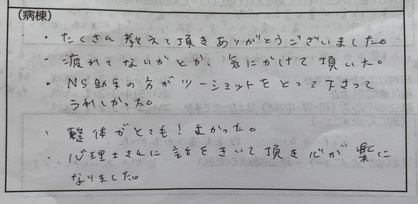 (病棟)
・たくさん教えて頂きありがとうございました。
・疲れてないかとか、気にかけて頂いた。
・NS助手の方がツーショットをとって下さって
うれしかった。
・整体がとても！よかった。
・心理士さんに話をきいて頂き心が楽に
なりました。